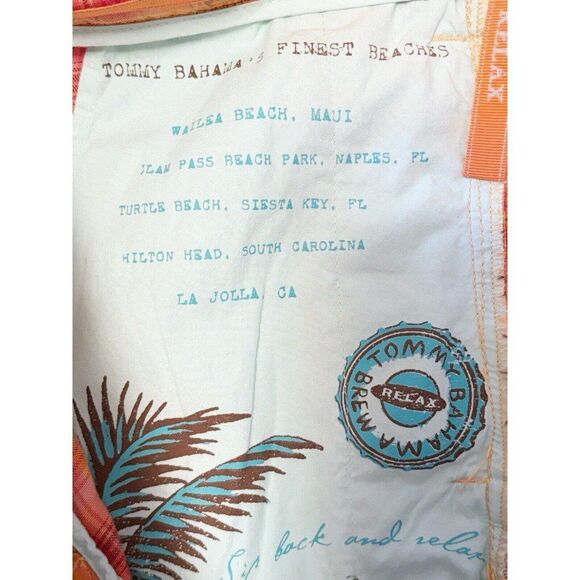 TOMMY BAHAMA'S FINEST BEACHES
RELAX
WAILEA BEACH, MAUI
CLAM PASS BEACH PARK, NAPLES, FL
TURTLE BEACH, SIESTA KEY, FL
HILTON HEAD, SOUTH CAROLINA
LA JOLLA, CA
TOMMY BAHAMA
RELAX
BREW
Sip back and relax